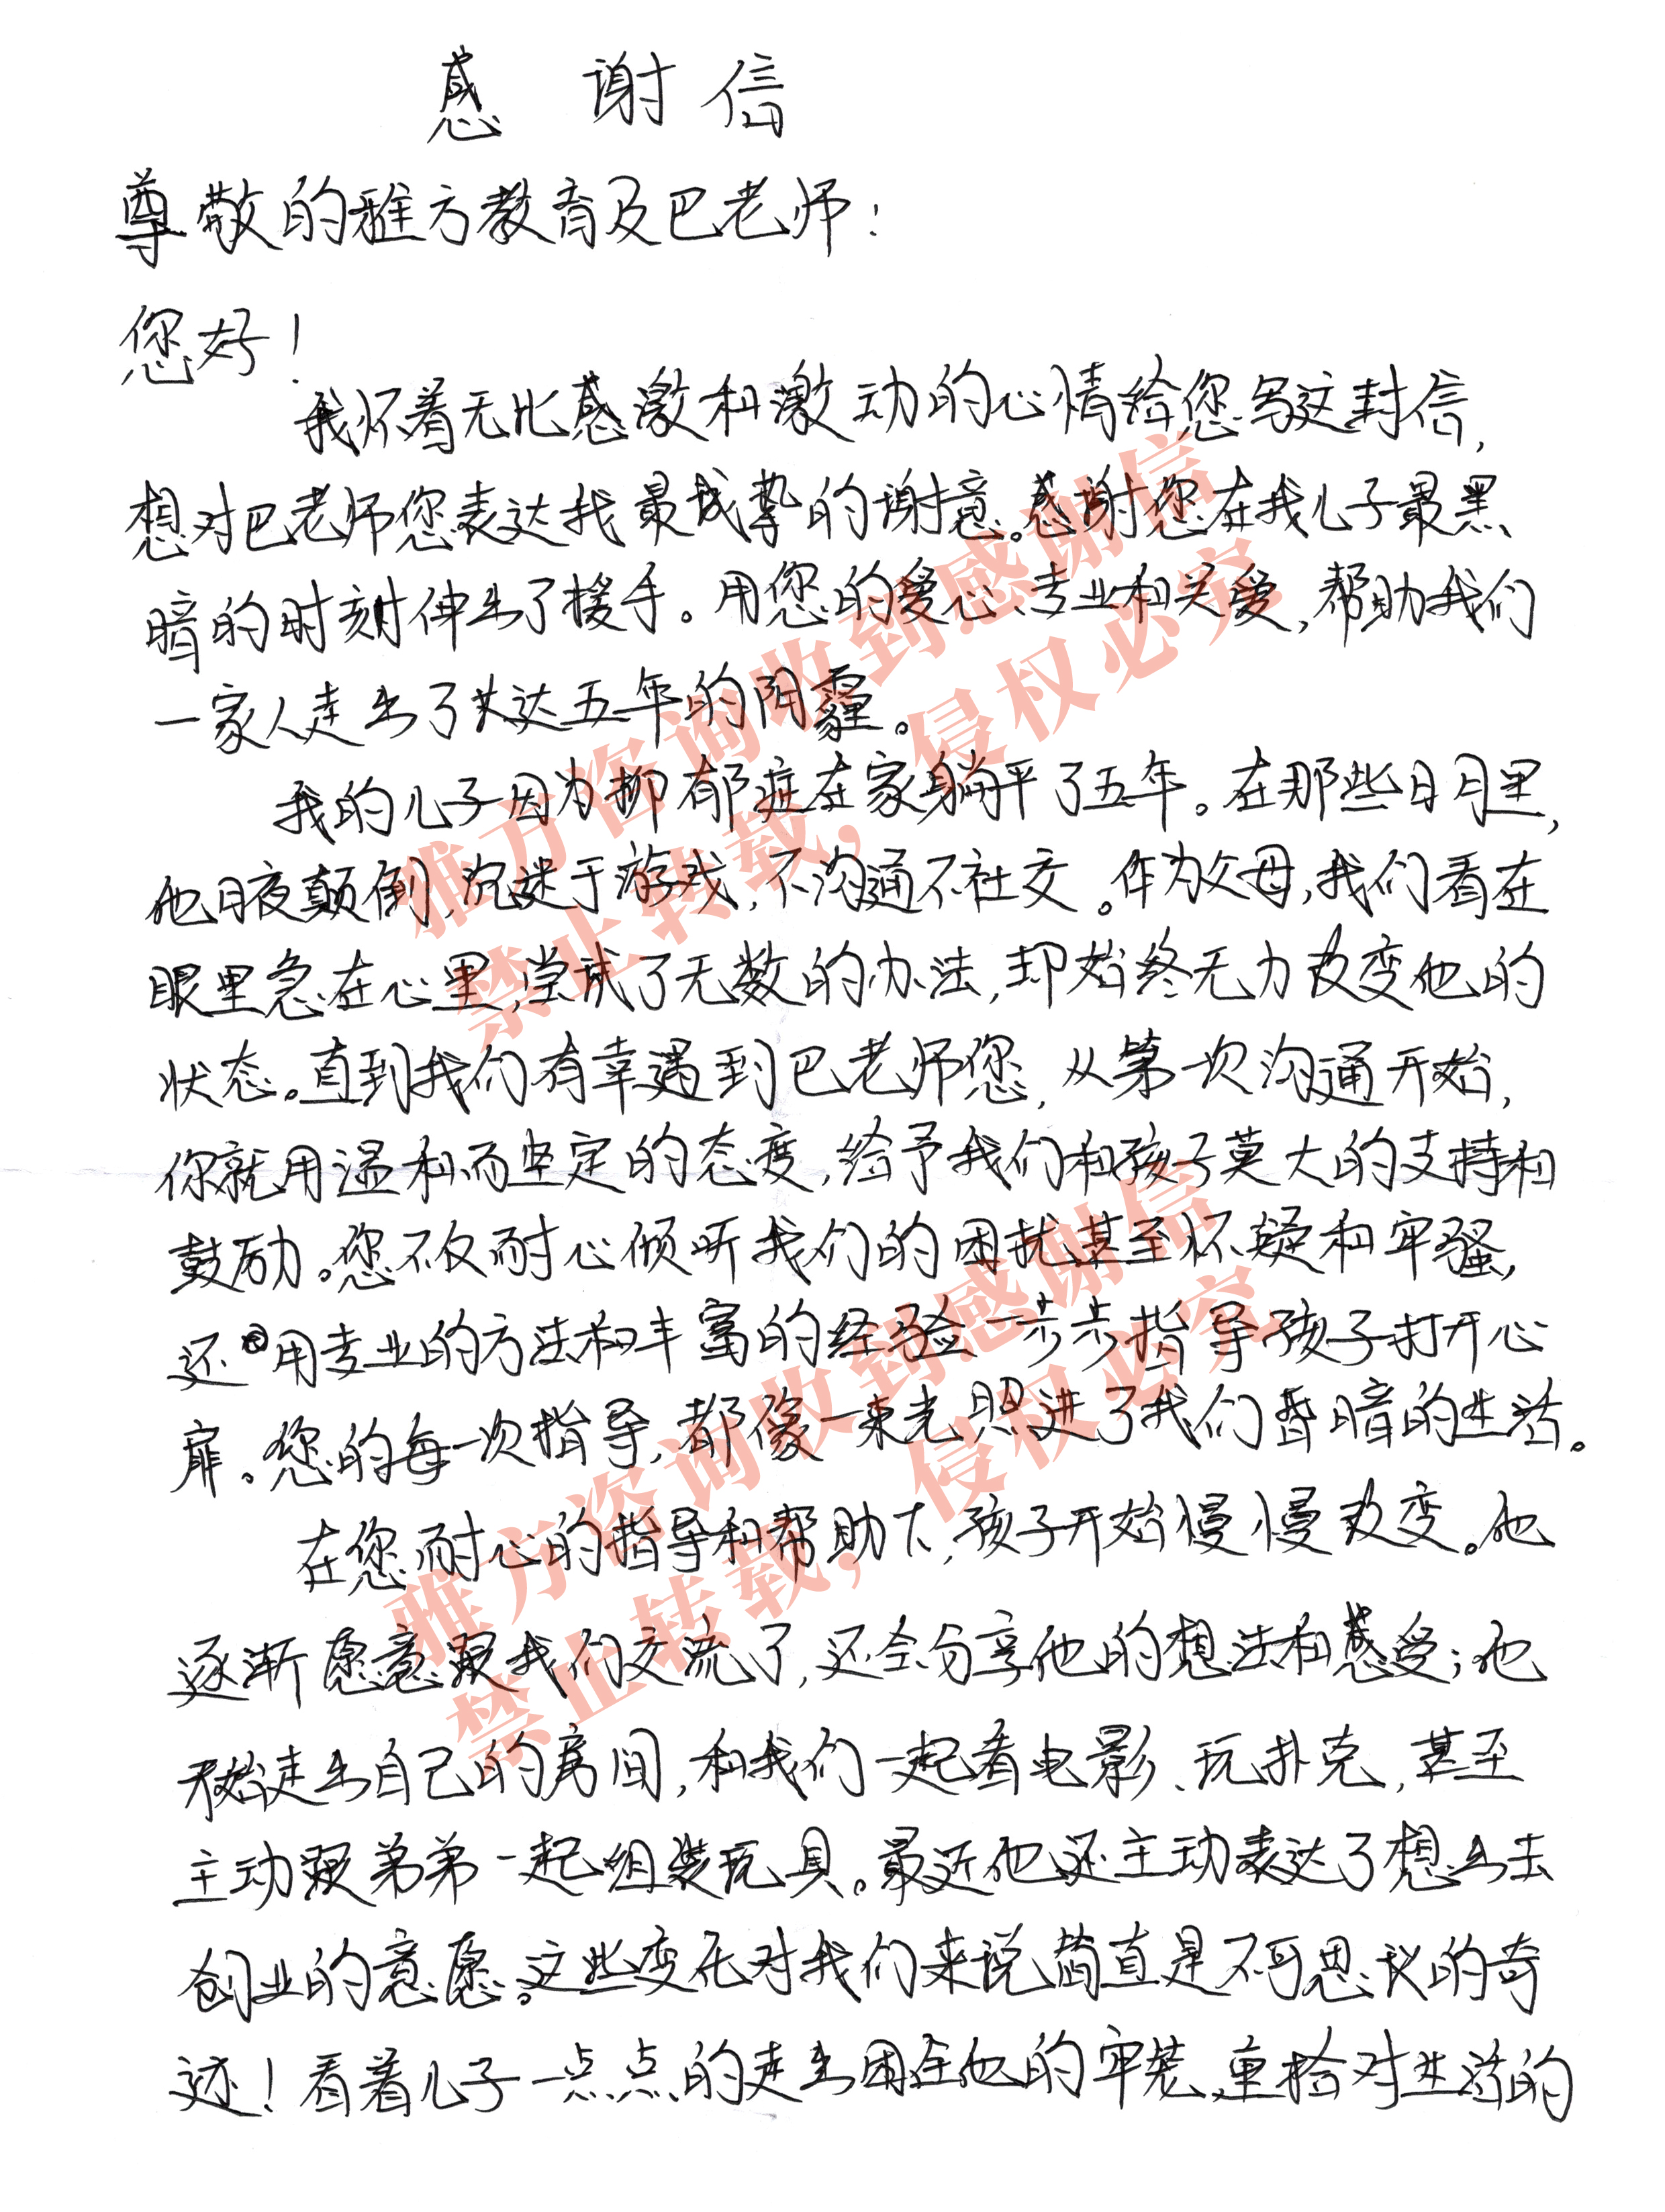 感 谢 信
尊敬的雅方教育及巴老师：
您好！
我怀着无比感激和激动的心情给您写这封信，
想对巴老师您表达我最诚挚的谢意。感谢您在我儿子最黑
暗的时刻伸出了援手。用您的爱心、专业和关爱，帮助我们
一家人走出了长达五年的阴霾。
我的儿子因为抑郁症在家躺平了五年。在那些日月里，
他日夜颠倒，沉迷于游戏，不沟通不社交。作为父母，我们看在
眼里急在心里，尝试了无数的办法，却始终无力改变他的
状态。直到我们有幸遇到巴老师您，从第一次沟通开始，
你就用温和而坚定的态度，给予我们和孩子莫大的支持和
鼓励。您不仅耐心倾听我们的困扰甚至怀疑和牢骚，
还用专业的方法和丰富的经验一步步指导孩子打开心
扉。您的每一次指导，都像一束光照进了我们昏暗的生活。
在您耐心的指导和帮助下，孩子开始慢慢改变。他
逐渐愿意跟我们交流了，还会分享他的想法和感受；他
开始走出自己的房间，和我们一起看电影、玩扑克，甚至
主动跟弟弟一起组装玩具。最近他还主动表达了想出去
创业的意愿。这些变化对我们来说简直是不可思议的奇
迹！看着儿子一点点的走出困住他的牢笼，重拾对生活的
雅方咨询收到感谢信
禁止转载，侵权必究
雅方咨询收到感谢信
禁止转载，侵权必究